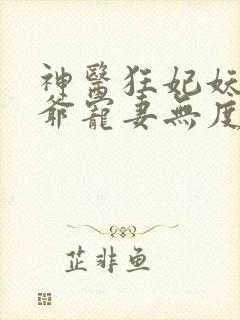 神醫狂妃妖
爺寵妻無度
芷非魚